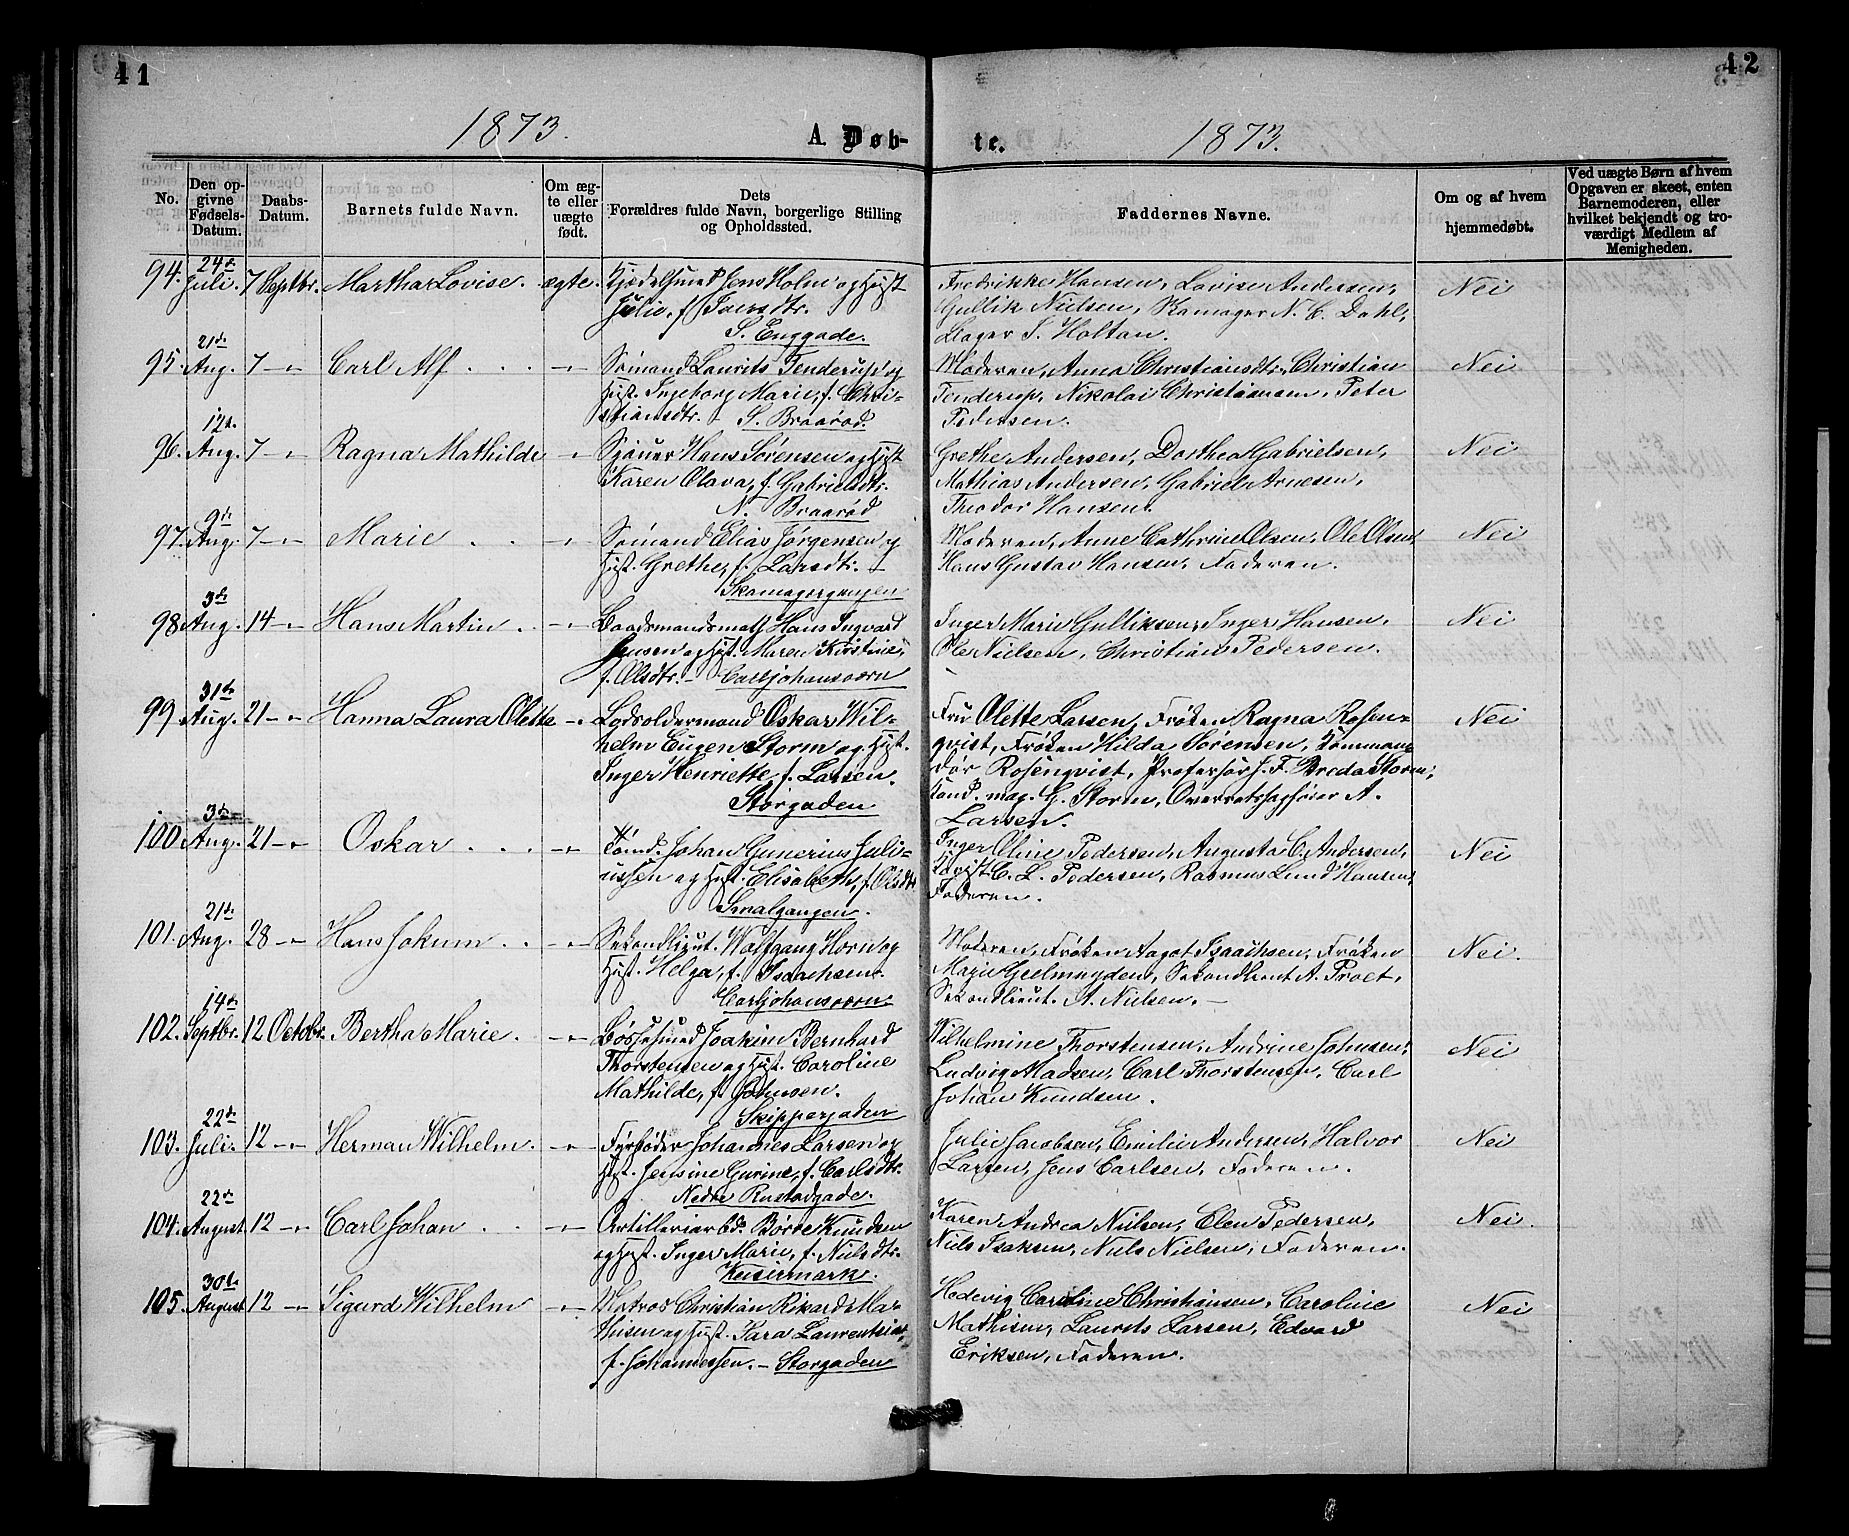 41
42
1873.
A. Døb-
te.
1873.
No.
Den opgivne Fødsels-Datum.
Daabs-Datum.
Barnets fulde Navn.
Om ægte eller uægte født.
Dets Forældres fulde Navn, borgerlige Stilling og Opholdssted.
Faddernes Navne.
Om og af hvem hjemmedøbt.
Ved uægte Børn af hvem Opgaven er skeet, enten Barnemoderen, eller hvilket bekjendt og troværdigt Medlem af Menigheden.
94. 24de Juli. 7 Septbr. Martha Lovise. ægte. Kjedelsmed Jens Holm og Hust
Julie, f. Iversdtr.
S. Enggade.
Fredrikke Hansen, Lovise Andersen,
Gullik Nielsen, Skomager N. C. Dahl,
Slager I. Holtan.
Nei
95. 21de Aug. 7 -"- Carl Alf -"- Sømand Laurits Tenderup og
Hust. Ingeborg Marie, f. Chri-
stiansdtr. - S. Braarød.
Moderen, Anna Christiansdtr, Christian
Tenderup, Nikolai Christiansen, Peter
Pedersen.
Nei
96. 12te Aug. 7 -"- Ragna Mathilde -"- Sjøuer Hans Sørensen og Hust
Karen Olava, f. Gabrielsdtr.
N. Braarød
Grethe Andersen, Dorthea Gabrielsen,
Mathias Andersen, Gabriel Arnesen,
Theodor Hansen.
Nei
97. 9de Aug. 7 -"- Marie -"- Sømand Elias Jørgensen og
Hust. Grethe, f. Larsdtr. -
Skomagergangen
Moderen, Anne Cathrine Olsen, Ole Olsen,
Hans Gustav Hansen, Faderen.
Nei
98 3de Aug. 14 -"- Hans Martin -"- Baadsmandsmath Hans Ingvard
Jensen og Hust. Maren Kirstine,
f. Olsdtr. - Carljohansværn
Inger Marie Gulliksen, Inger Hansen,
Ole Nielsen, Christian Pedersen.
Nei
99 31te Aug. 21 -"- Hanna Laura Olette -"- Lodsoldermand Oskar Wil-
helm Eugen Storm og Hust.
Inger Henriette, f. Larsen.
Storgaden
Fru Olette Larsen, Frøken Ragna Rosen-
qvist, Frøken Hilda Sørensen, Komman-
dør Rosenqvist, Professor J. F. Breda Storm,
Cand. mag. G. Storm, Overretssagfører A.
Larsen.
Nei
100 3de Aug. 21 -"- Oskar -"- Tømd. Johan Gunerius Juli-
ussen og Hust. Elisabeth, f. Olsdtr
Smalgangen.
Inger Oline Pedersen, Augusta C. Andersen,
C. L. Pedersen, Rasmus Lund Hansen,
Faderen.
Nei
101. 21de Aug. 28 -"- Hans Jokum -"- Sekondlieut. Wolfgang Horn og
Hust. Helga, f. Isaachsen.
Carljohansværn.
Moderen, Frøken Aagot Isaachsen, Frøken
Marie Gjelmuyden, Sekondlieut A. Proet,
Sekondlieut. A. Nielsen. -
Nei.
102. 14de Septbr. 12 Octobr. Bertha Marie. -"- Bøssesmed Joakim Bernhard
Thorstensen og Hust. Caroline
Mathilde, f. Johnsen.
Skippergaden
Wilhelmine Thorstensen, Andrine Johnsen,
Ludvig Madsen, Carl Thorstensen, Carl
Johan Knudsen.
Nei
103. 22de Juli. 12 -"- Herman Wilhelm. -"- Fyrbøder Johannes Larsen og
Hust. Jensine Gurine, f. Carlsdtr.
Nedre Rustadgade.
Julie Jacobsen, Emilie Andersen, Halvor
Larsen, Jens Carlsen, Faderen.
Nei
104. 22de August 12 -"- Carl Johan -"- Artilleriarbd. Børre Knudsen
og Hust. Inger Marie, f. Nielsdtr.
Keisermark.
Karen Andrea Nielsen, Elen Pedersen,
Niels Isaksen, Niels Nielsen, Faderen.
Nei.
105. 30te August 12 -"- Sigurd Wilhelm -"- Matros Christian Rikard Mat-
hisen og Hust. Sara Laurentsia,
f. Johannessen. - Storgaden
Hedevig Caroline Christiansen, Caroline
Mathisen, Laurits Larsen, Edvard
Eriksen, Faderen.
Nei